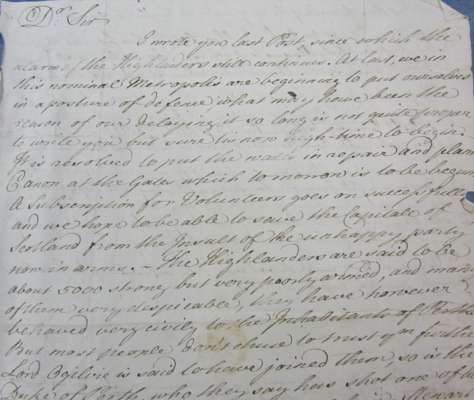 Dr. Sir
I wrote you last Post since which the
alarms of the Highlanders still continues. At last, we in
this nominal Metropolis are beginning to put ourselves
in a posture of defence what may have been the
reason of our delaying it so long is not quite proper
to write you but sure tis now high time to begin.
It is resolved to put the walls in repair and plant
Canon at the Gates which to morrow is to be begun
A Subscription for Volunteers goes on successfully
and we hope to be able to save the Capitale of
Scotland from the Insult of the unhappy party
now in arms. - The Highlanders are said to be
about 5000 strong but very poorly armed, and many
of them very despicable, they have however
behaved very civily to the Inhabitants of Perth
But most people don't chuse to trust ym further
Lord Ogilvie is said to have joined them, so is the
Duke of Perth, who they say has shot one of the